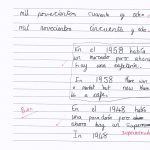 mil novecientos cuarenta y ocho
mil novecientos cincuenta y ocho
En el 1958 había
un mercado pero ahora
hay una cafetería.
In 1958 there was
a market but now there
is a cafe.
En el 1948 había
una panadería pero ahora
ahora hay un supermercado
In 1948